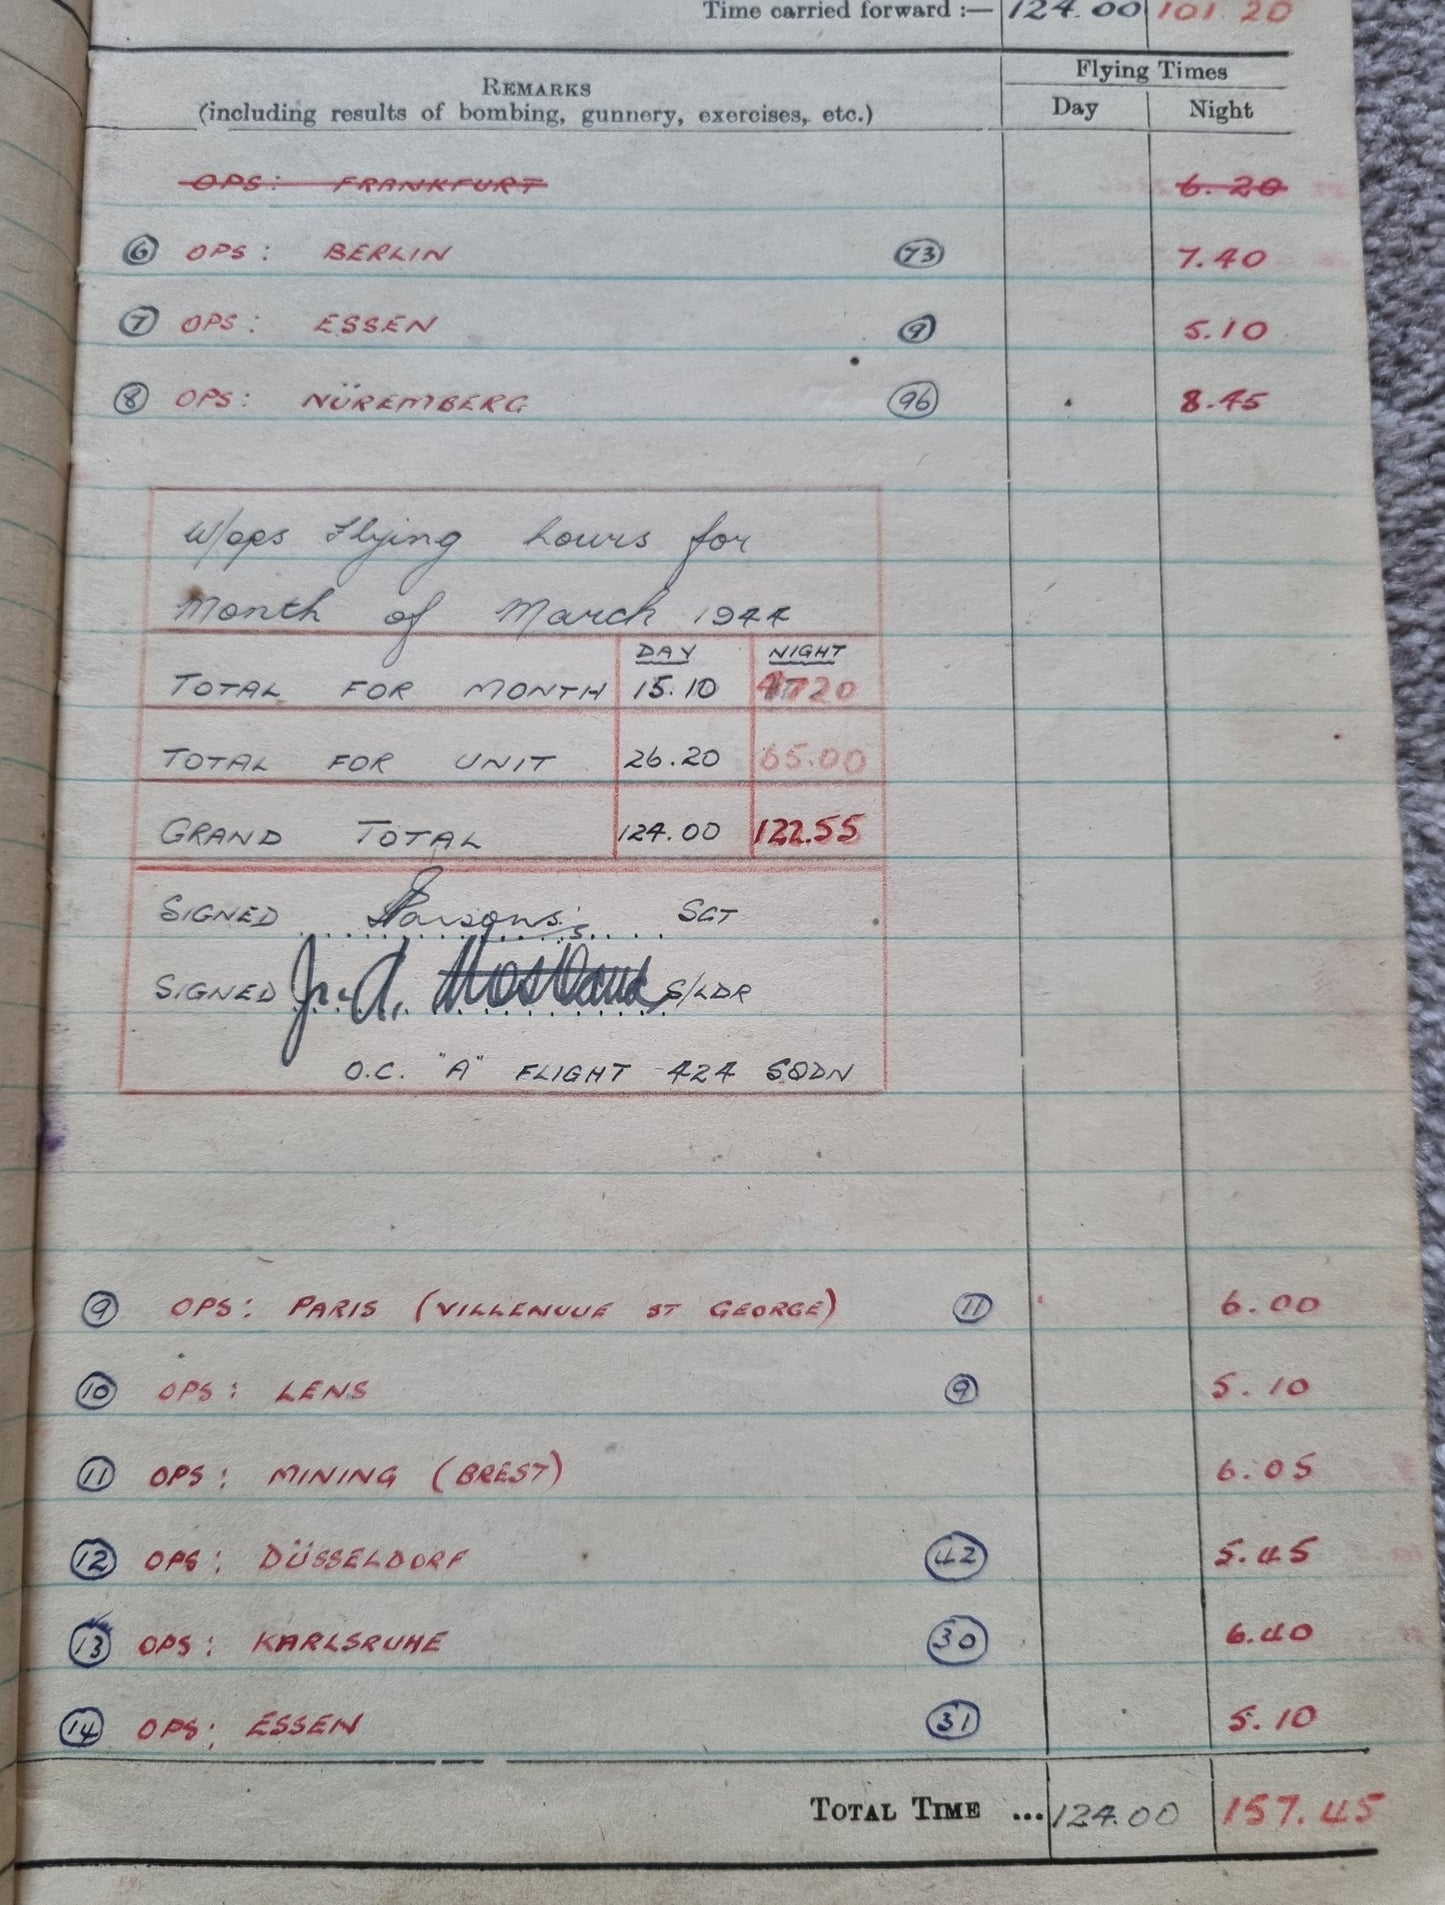 Time carried forward :— 124.00 101.20
Flying Times
REMARKS
(including results of bombing, gunnery, exercises, etc.) Day Night
OPS: FRANKFURT 6.20
6 OPS: BERLIN 73 7.40
7 OPS: ESSEN 9 5.10
8 OPS: NÜREMBERG 96 8.45
W/ops Flying hours for
Month of March 1944
DAY NIGHT
TOTAL FOR MONTH 15.10
TOTAL FOR UNIT 26.20 65.00
GRAND TOTAL 124.00 122.55
SIGNED Parsons. SGT
SIGNED S/LDR
O.C. "A" FLIGHT 424 SQDN
9 OPS: PARIS (VILLENUUE ST GEORGE) 11 6.00
10 OPS: LENS 9 5.10
11 OPS: MINING (BREST) 6.05
12 OPS: DÜSSELDORF 42 5.45
13 OPS: KARLSRUHE 30 6.40
14 OPS: ESSEN 31 5.10
TOTAL TIME ... 124.00 157.45